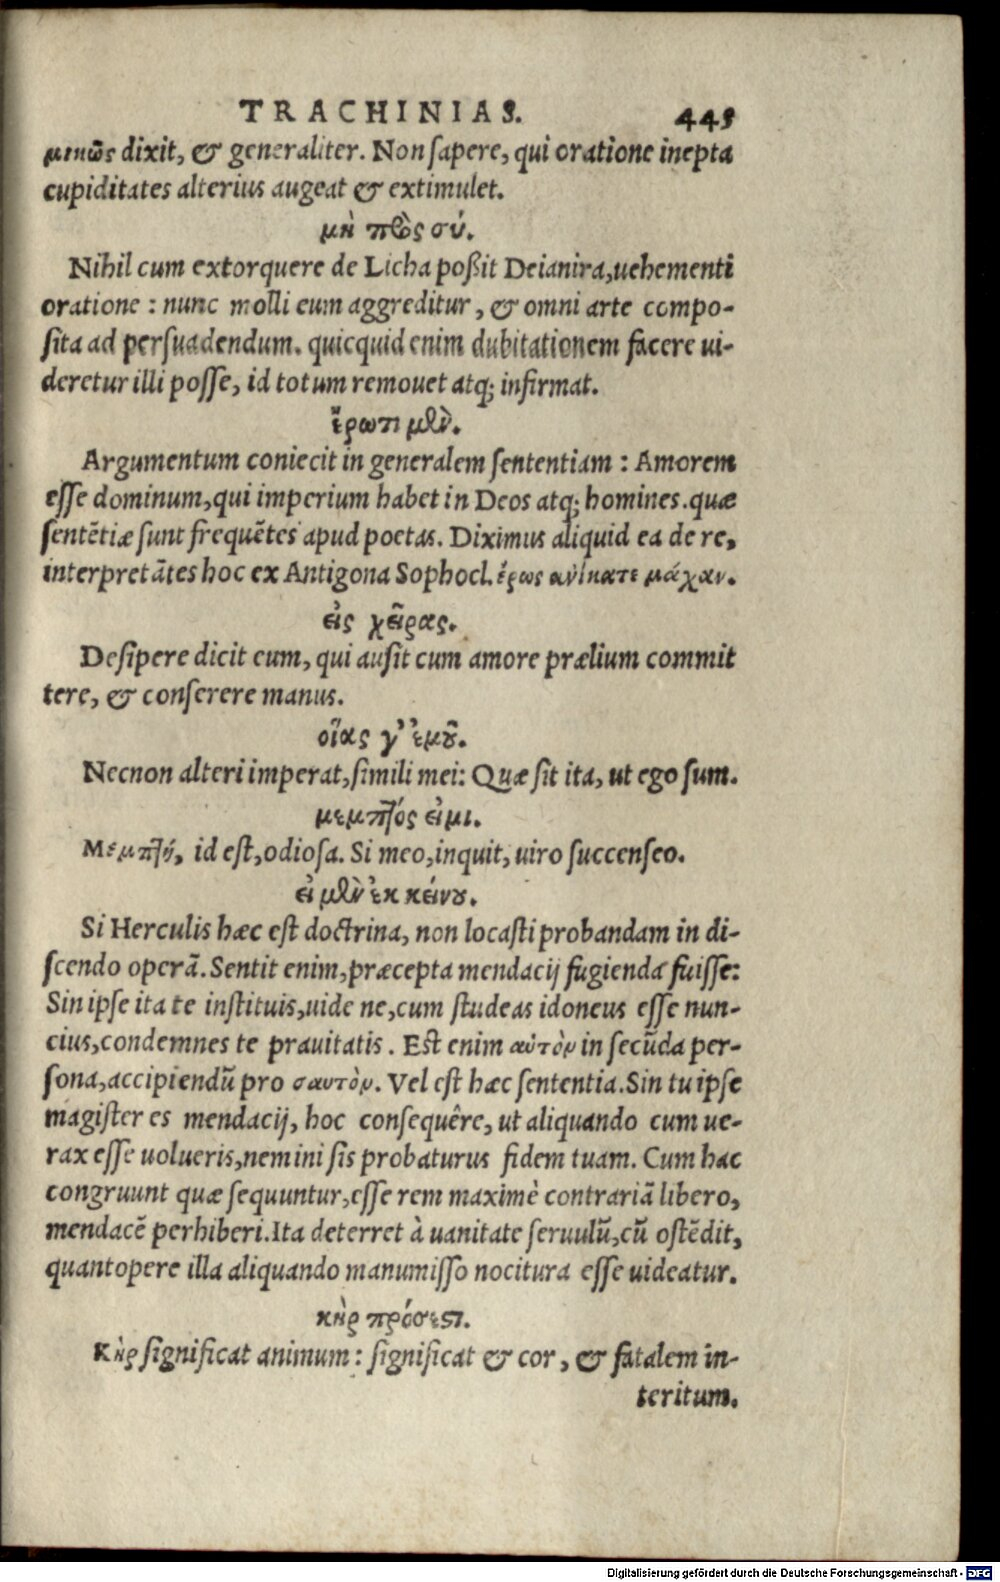 TRACHINIAS. 445
μικῶς dixit, & generaliter. Non sapere, qui oratione inepta
cupiditates alterius augeat & extimulet.
μὴ πρὸς σύ.
Nihil cum extorquere de Licha poßit Deianira, uehementi
oratione: nunc molli eum aggreditur, & omni arte compo-
sita ad persuadendum. quicquid enim dubitationem facere ui-
deretur illi posse, id totum remouet atq; infirmat.
ἔρωτι μὲν.
Argumentum coniecit in generalem sententiam: Amorem
esse dominum, qui imperium habet in Deos atq; homines. quæ
sentētiæ sunt frequētes apud poetas. Diximus aliquid ea de re,
interpretātes hoc ex Antigona Sophocl. ἔρως ανίκατε μάχαν.
εἰς χεῖρας.
Desipere dicit eum, qui ausit cum amore prælium commit
tere, & conserere manus.
οἵας γ' ἐμοῦ.
Necnon alteri imperat, simili mei: Quæ sit ita, ut ego sum.
μεμπτός εἰμι.
Μεμπτή, id est, odiosa. Si meo, inquit, uiro succenseo.
εἰ μὲν ἐκ κείνου.
Si Herculis hæc est doctrina, non locasti probandam in di-
scendo operā. Sentit enim, præcepta mendacij fugienda fuisse:
Sin ipse ita te instituis, uide ne, cum studeas idoneus esse nun-
cius, condemnes te prauitatis. Est enim αὑτὸν in secūda per-
sona, accipiendū pro σαυτὸν. Vel est hæc sententia. Sin tu ipse
magister es mendacij, hoc consequêre, ut aliquando cum ue-
rax esse uolueris, nemini sis probaturus fidem tuam. Cum hac
congruunt quæ sequuntur, esse rem maximè contrariā libero,
mendacē perhiberi. Ita deterret à uanitate seruulū, cū ostēdit,
quantopere illa aliquando manumisso nocitura esse uideatur.
κὴρ πρόσεστι.
Κὴρ significat animum: significat & cor, & fatalem in-
teritum.
Digitalisierung gefördert durch die Deutsche Forschungsgemeinschaft - DFG